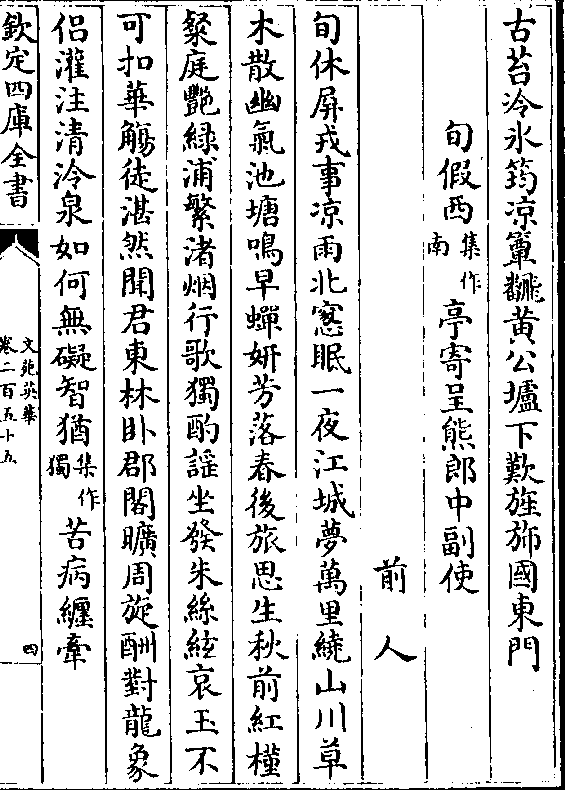 古苔冷氷筠涼簟飜黄公壚下歎旌斾國東門
旬假西集作南亭寄呈熊郎中副使
前人
旬休屏戎事涼雨北窓眠一夜江城夢萬里繞山川草
木散幽氣池塘鳴早蟬妍芳落春後旅思生秋前紅槿
粲庭艷綠浦繁渚烟行歌獨酌謡坐發朱絲絃哀玉不
可扣華觴徒湛然聞君東林卧郡閣曠周旋酬對龍象
侣灌注清泠泉如何無礙智猶集作獨苦病纏牽
欽定四庫全書
文苑英華
卷二百五十五
四